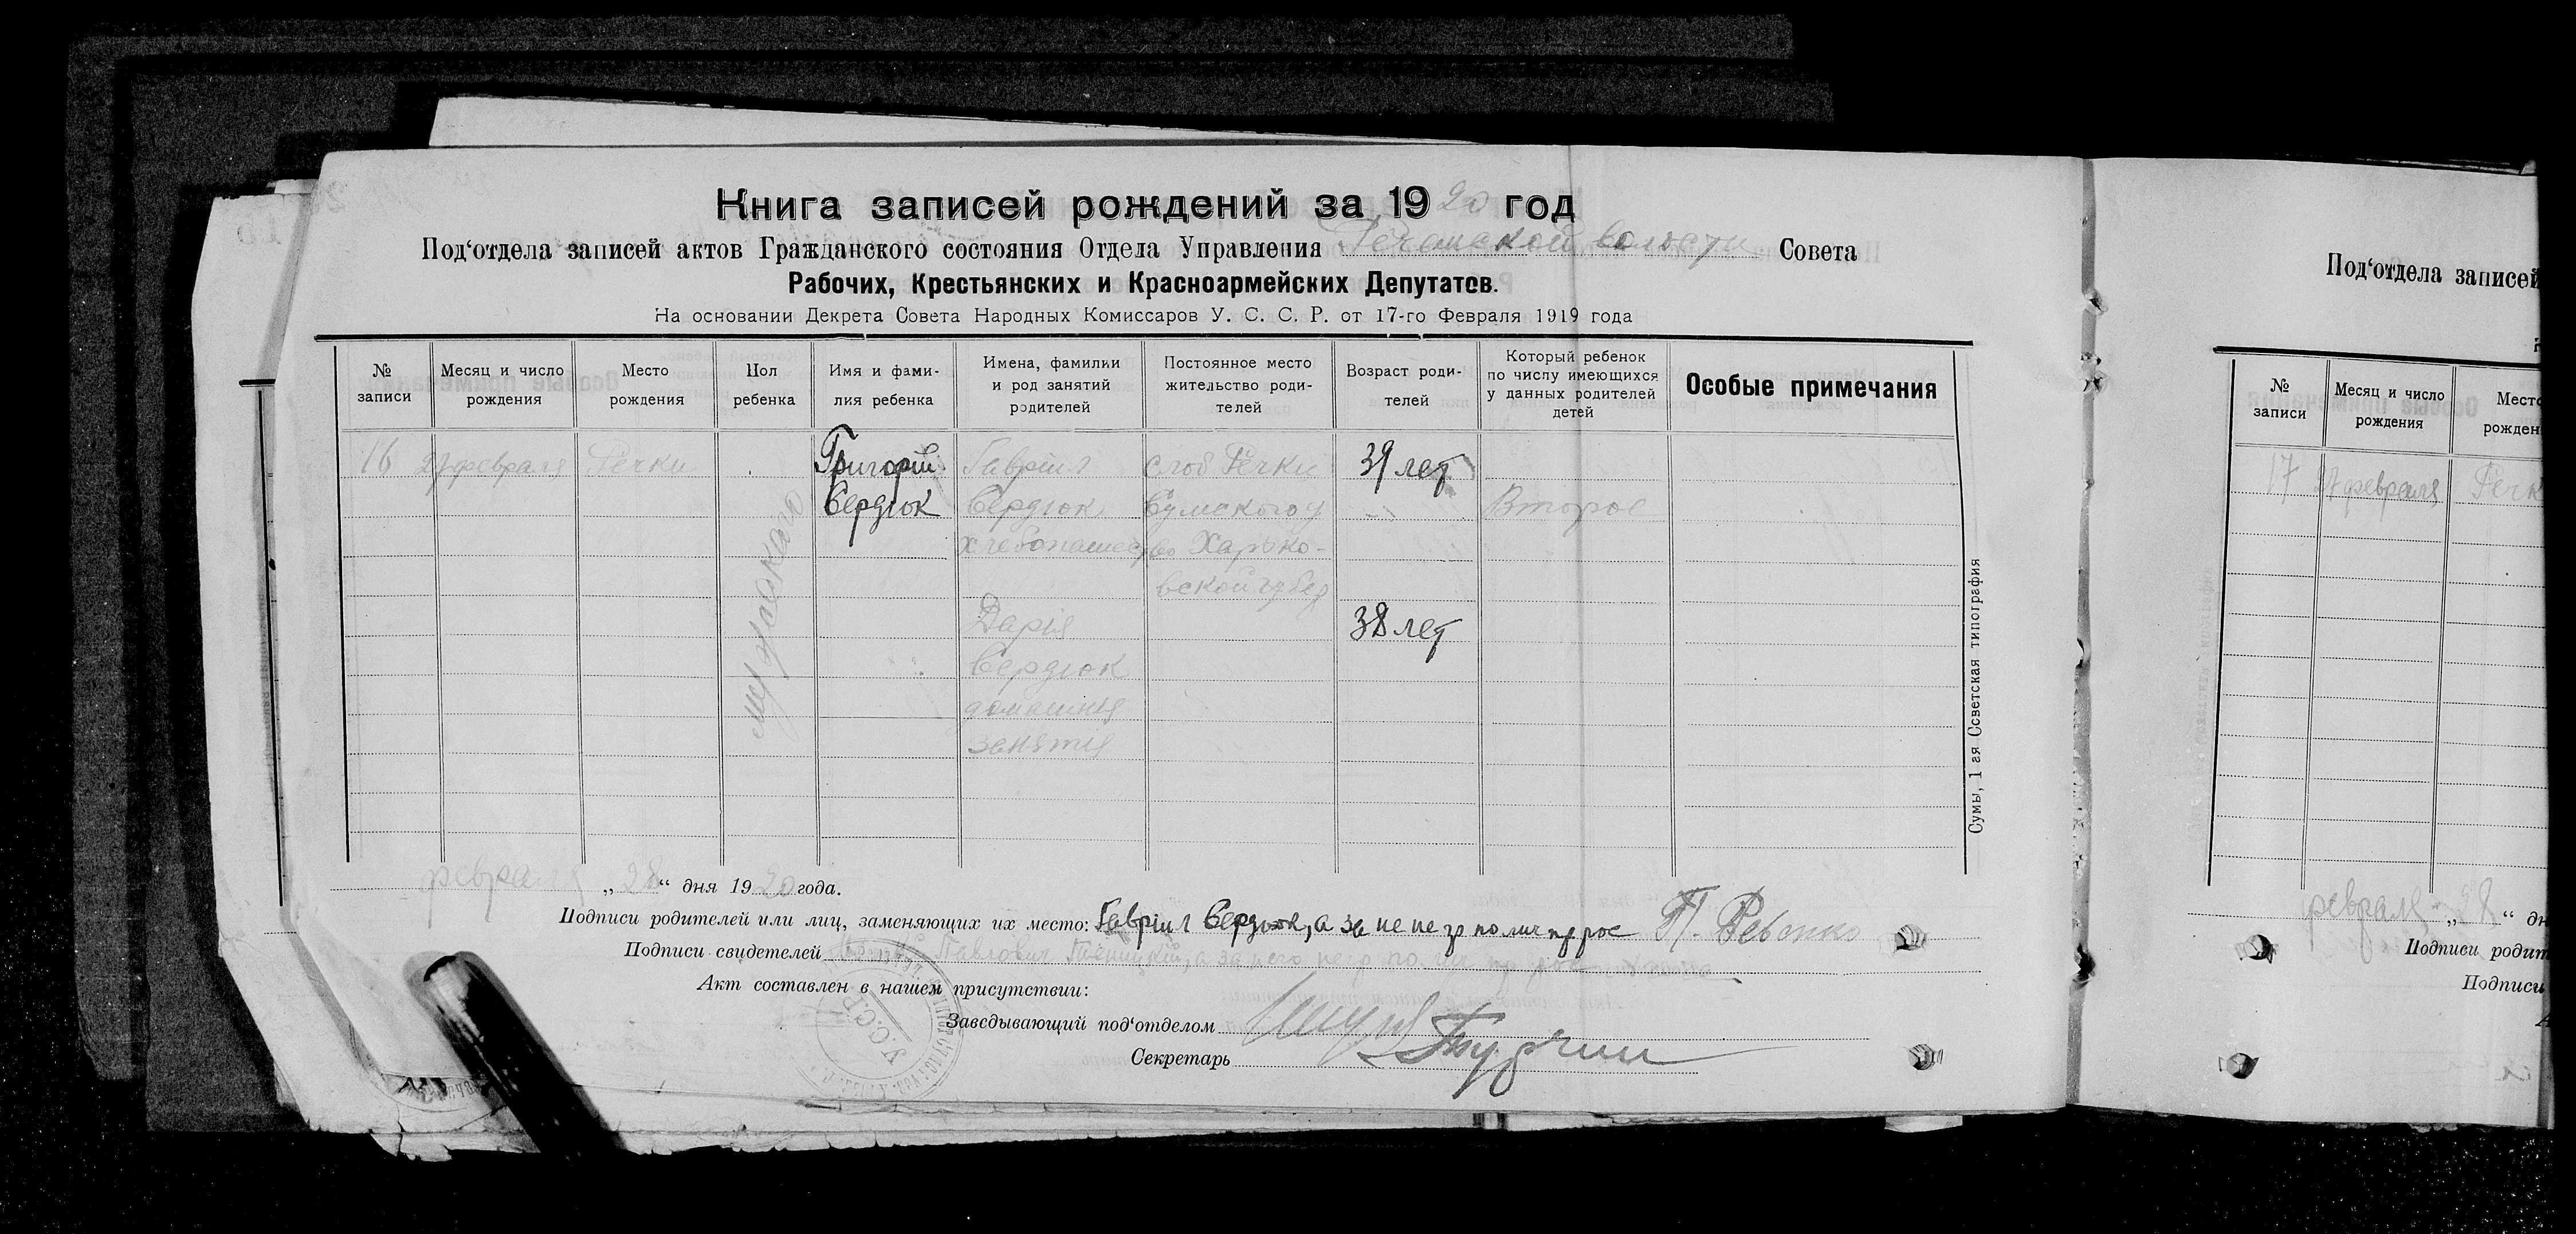 Книга записей рождений за 1920 год
Под‘отдела записей актов Гражданского состояния Отдела Управления Речанской волости Совета
Рабочих, Крестьянских и Красноармейских Депутатов.
На основании Декрета Совета Народных Комиссаров У. С. С. Р. от 17-го Февраля 1919 года
№ записи
Месяц и число рождения
Место рождения
Пол ребенка
Имя и фами-
лия ребенка
Имена, фамилии
и род занятий
родителей
Постоянное место
жительство роди-
телей
Возраст роди-
телей
Который ребенок
по числу имеющихся
у данных родителей
детей
Особые примечания
16
27 февраля
Речки
мужского
Григорій
Сердюк
Гавріил
Сердюк
хлебопашество
Дарія
Сердюк
домашнія
занятія
слоб Речки
Сумского у
Харько-
вской губер
39 лет
38 лет
Второе
Сумы, 1 ая Советская типография
февраля „28“ дня 1920 года.
Подписи родителей или лиц, заменяющих их место: Гавріил Сердюк, а за не по П. Ревенко
Подписи свидетелей Павлович а за него
Акт составлен в нашем присутствии:
Заведывающий под‘отделом
Секретарь
У.С.С.Р.
Под‘отдела записей
№ записи
Месяц и число
рождения
Место
рожден
17
27 февраля
Речк
февраля „28“ дн
Подписи родит
Подписи